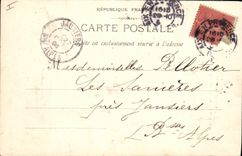 RÉPUBLIQUE FRANÇAISE
CARTE POSTALE
Ce côté est exclusivement réservé à l'adresse
JAUSIERS
Mesdemoiselles Pellotier
Les Sanières
près Jausiers
Bses Alpes